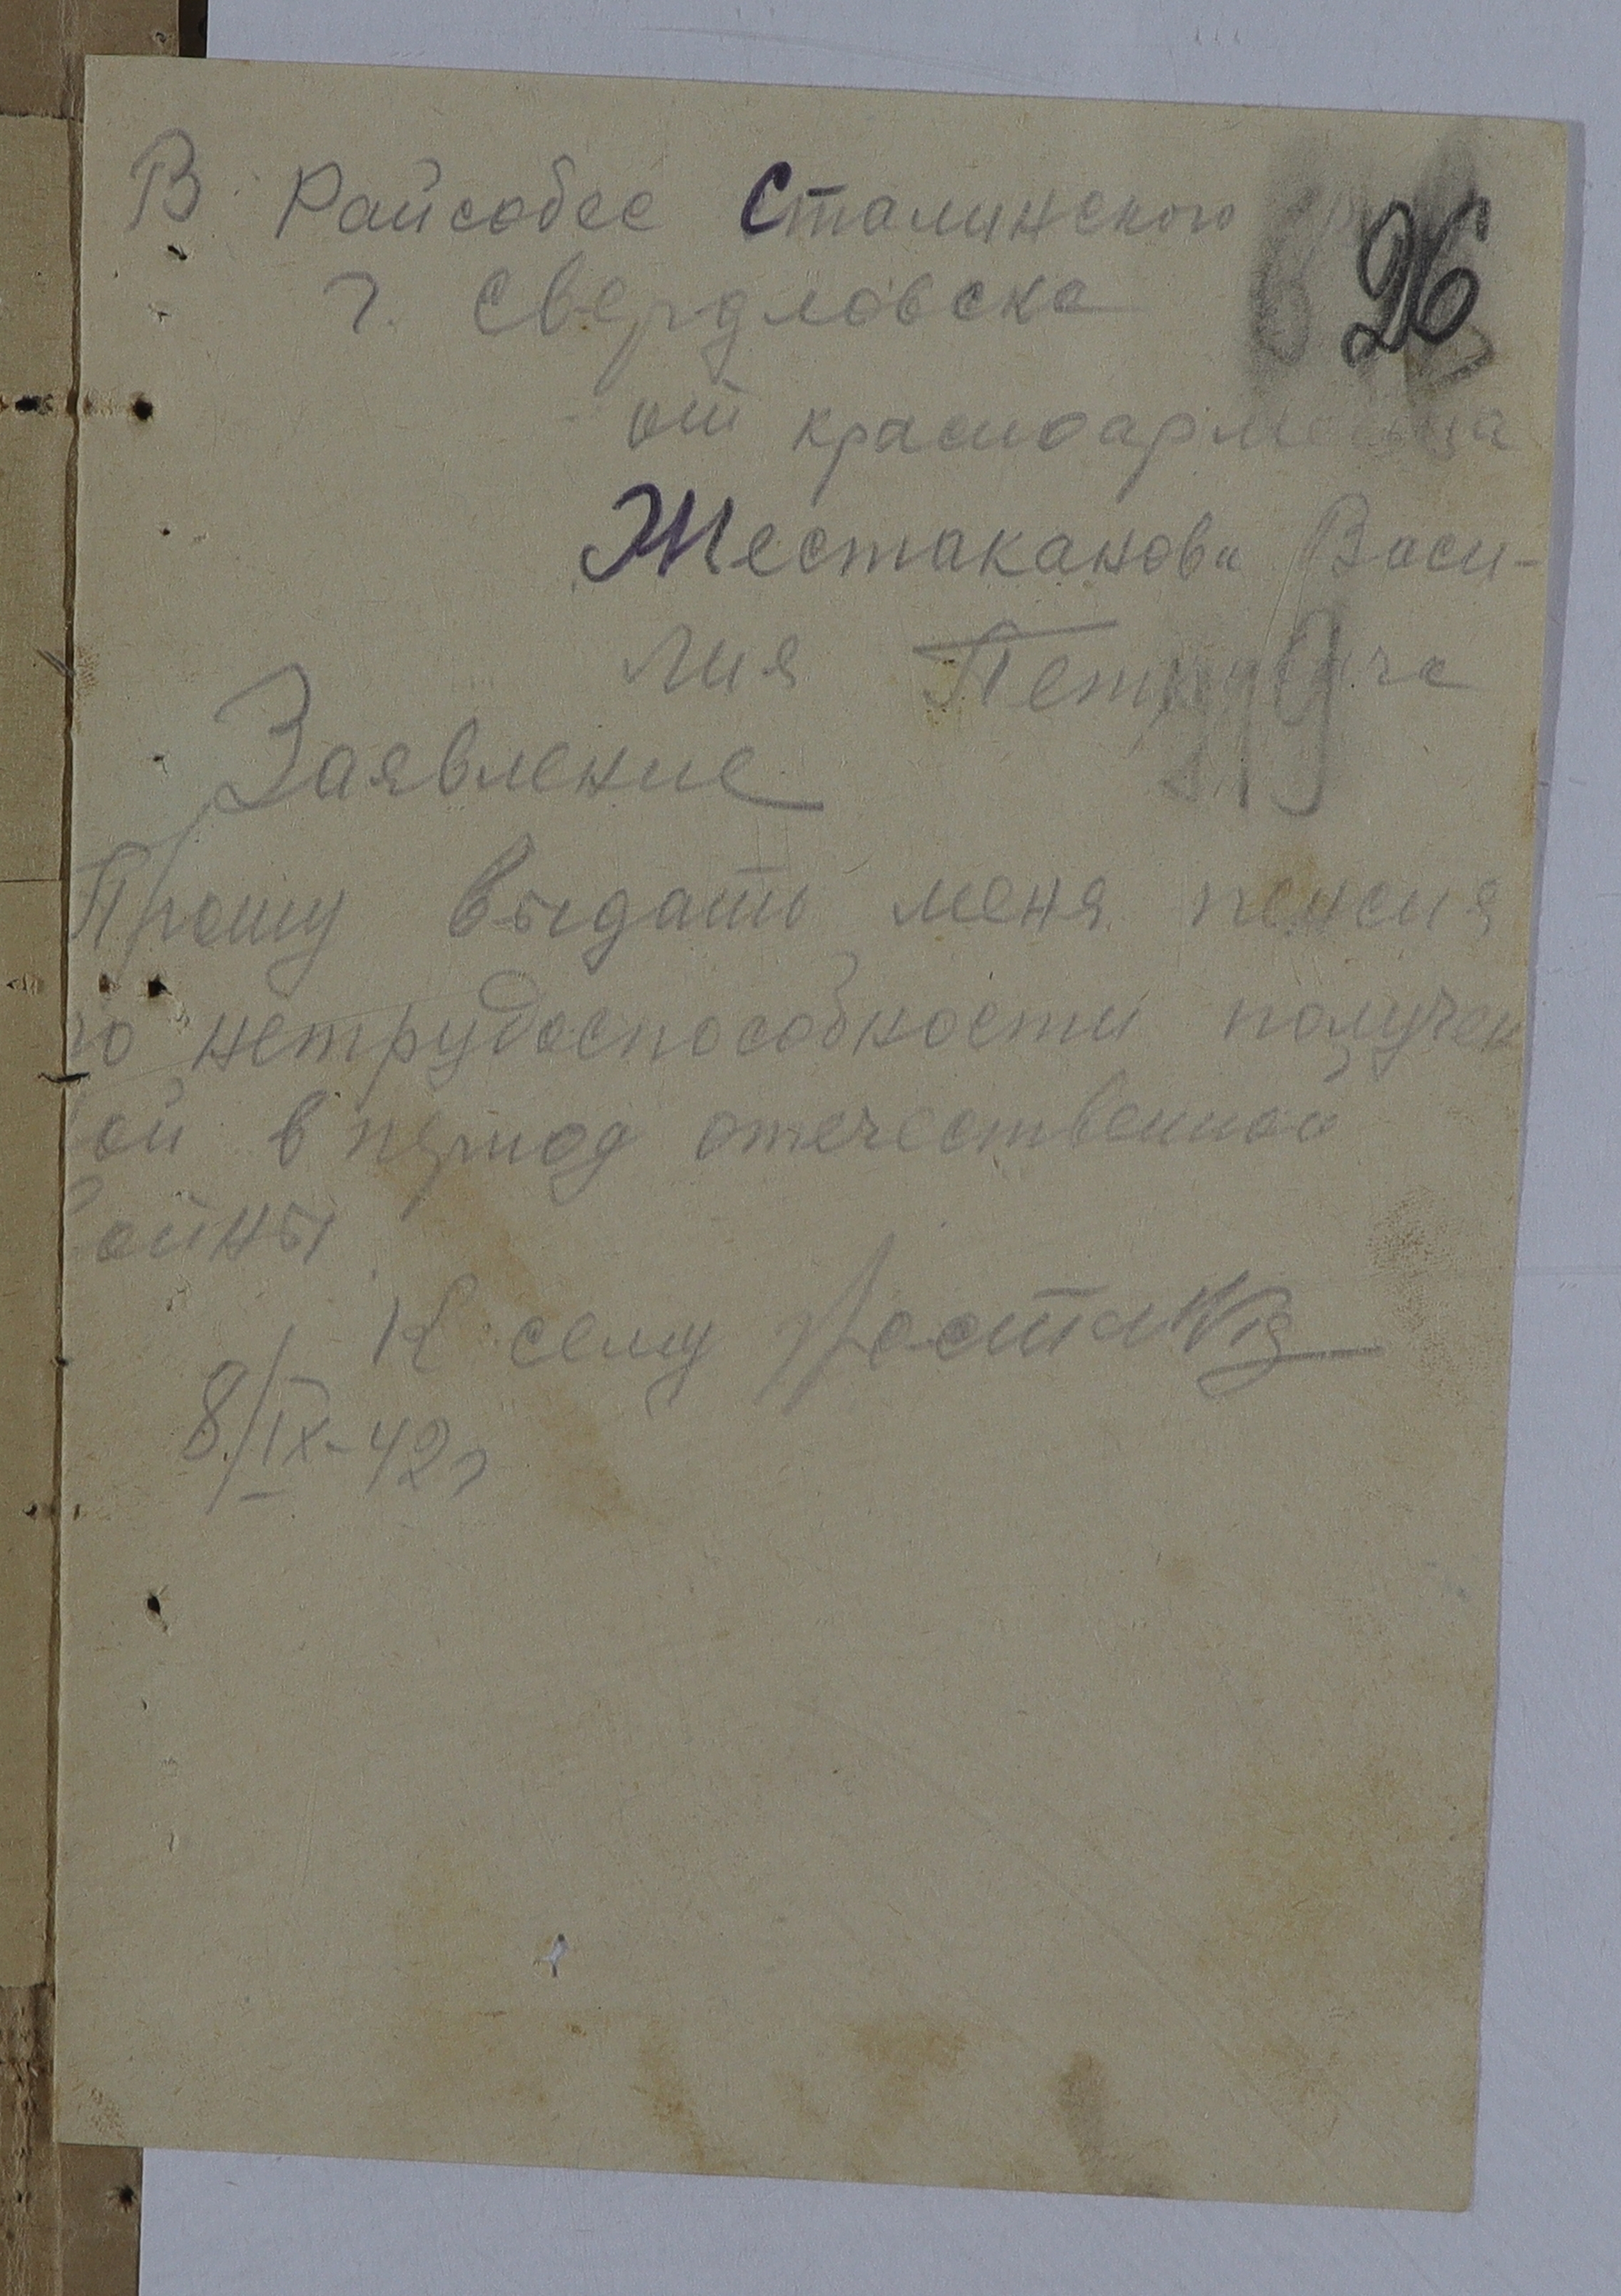 В Райсобес Сталинского
26
г. Свердловска
от красноармейца
Жестаканова Васи-
лия Петровича
Заявление
Прошу выдать меня пенсия
по нетрудоспособности получен
ой в период отечественной
войны
К сему
8/IX-42г